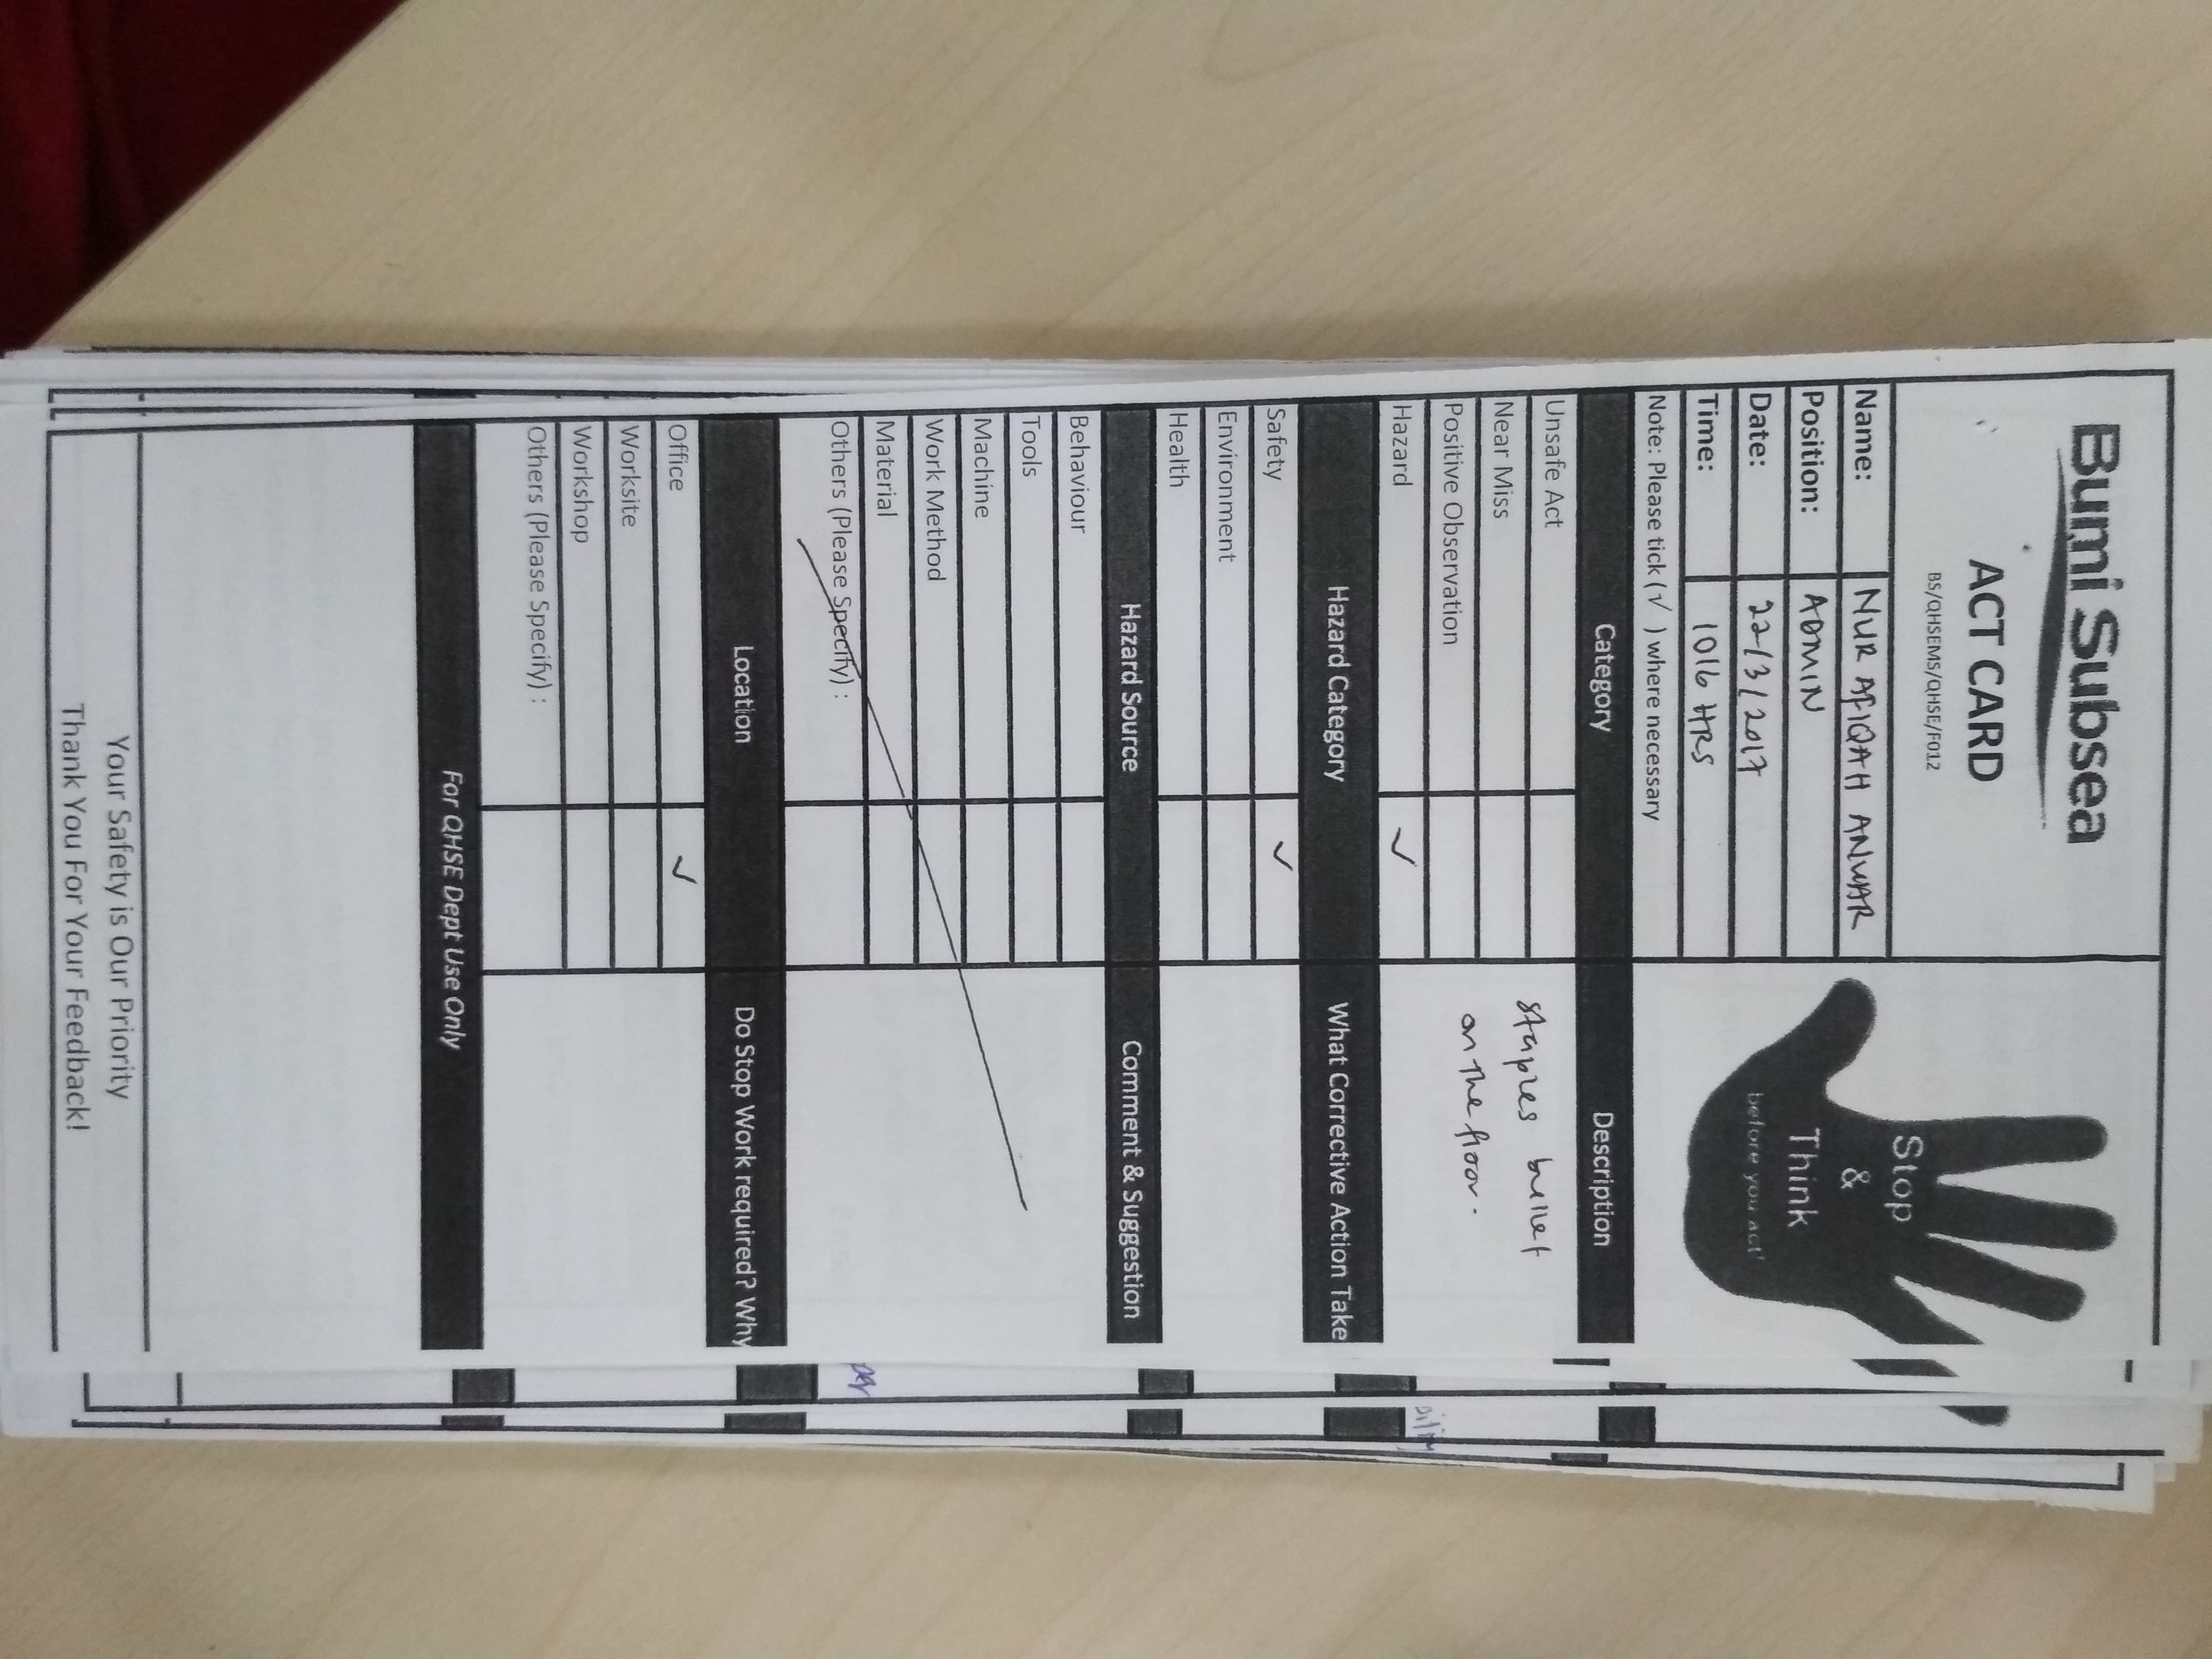 Bumi Subsea
ACT CARD
BS/QHSEMS/QHSE/F012
Stop
&
Think
before you act'
Name: NUR AFIQAH ANWAR
Position: ADMIN
Date: 22/3/2017
Time: 1016 HRS
Note: Please tick (√ ) where necessary
Category Description
Unsafe Act
Near Miss
Positive Observation
Hazard ✓
staples bullet
on the floor.
Hazard Category What Corrective Action Take
Safety ✓
Environment
Health
Hazard Source Comment & Suggestion
Behaviour
Tools
Machine
Work Method
Material
Others (Please Specify) :
Location Do Stop Work required? Why
Office ✓
Worksite
Workshop
Others (Please Specify) :
For QHSE Dept Use Only
Your Safety is Our Priority
Thank You For Your Feedback!